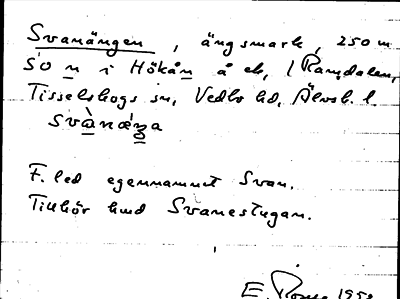 Svanängen, ängsmark, 250 m
SO n i Hökån å ek, i Ramdalen,
Tisselskogs sn, Vedbo hd, Älvsb. l.
svànǽŋa
F. led egennamnet Svan.
Tillhör hmd Svanestugan.
E. 1950